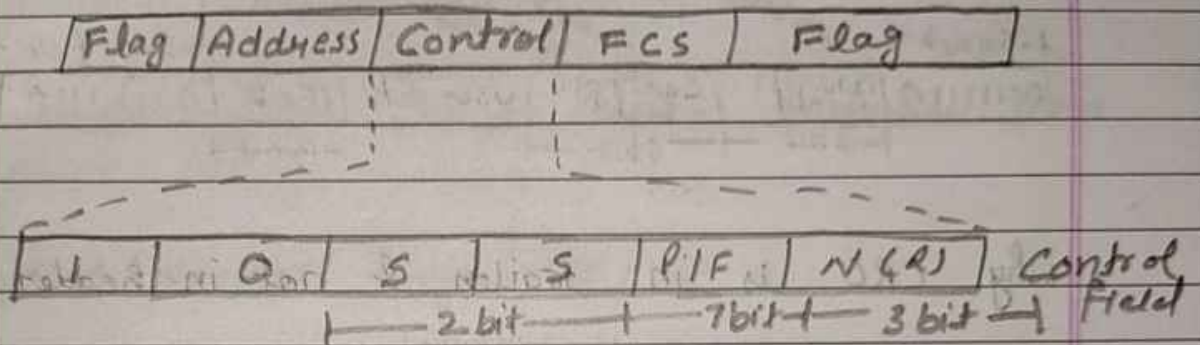 Flag Address Control FCS Flag
1 0 S S P/F N(R) Control
2 bit 1bit 3 bit Field